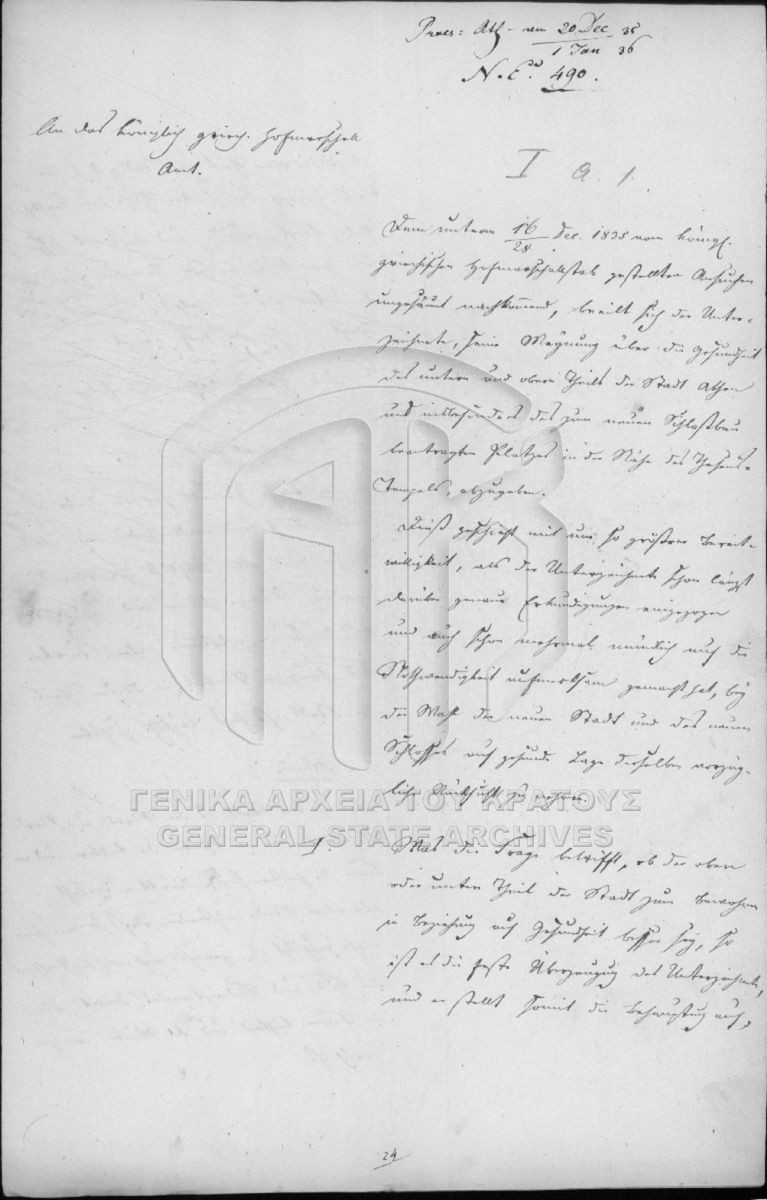 Praes: Ath. am 20 Dec. 35
1 Jan 36
N. E. 490.
An das königlich griech. Hofmarschall
Amt.
I a. 1.
Dem unterm 16/28 Dec. 1835 vom königl.
griechischen Hofmarschallstab gestellten Ansuchen
ungesäumt nachkommend, beeilt sich der Unter-
zeichnete, seine Meynung über die Gesundheit
des untern und obern Theils der Stadt Athen
und insbesondere des zum neuen Schloßbau
beantragten Platzes in der Nähe des Theseus-
Tempels, abzugeben.
Dieß geschieht mit um so größerer Bereit-
willigkeit, als der Unterzeichnete schon längst
darüber genaue Erkundigungen eingezogen
und auch schon mehrmals mündlich auf die
Nothwendigkeit aufmerksam gemacht hat, bey
der Wahl der neuen Stadt und des neuen
Schlosses auf gesunde Lage derselben vorzüg-
liche Rücksicht zu nehmen.
ΓΕΝΙΚΑ ΑΡΧΕΙΑ ΤΟΥ ΚΡΑΤΟΥΣ
GENERAL STATE ARCHIVES
I. Was die Frage betrifft, ob der obere
oder untere Theil der Stadt zum Bewohnen
in Beziehung auf Gesundheit besser sey, so
ist es die feste Überzeugung des Unterzeichneten,
und er stellt somit die Behauptung auf,
24